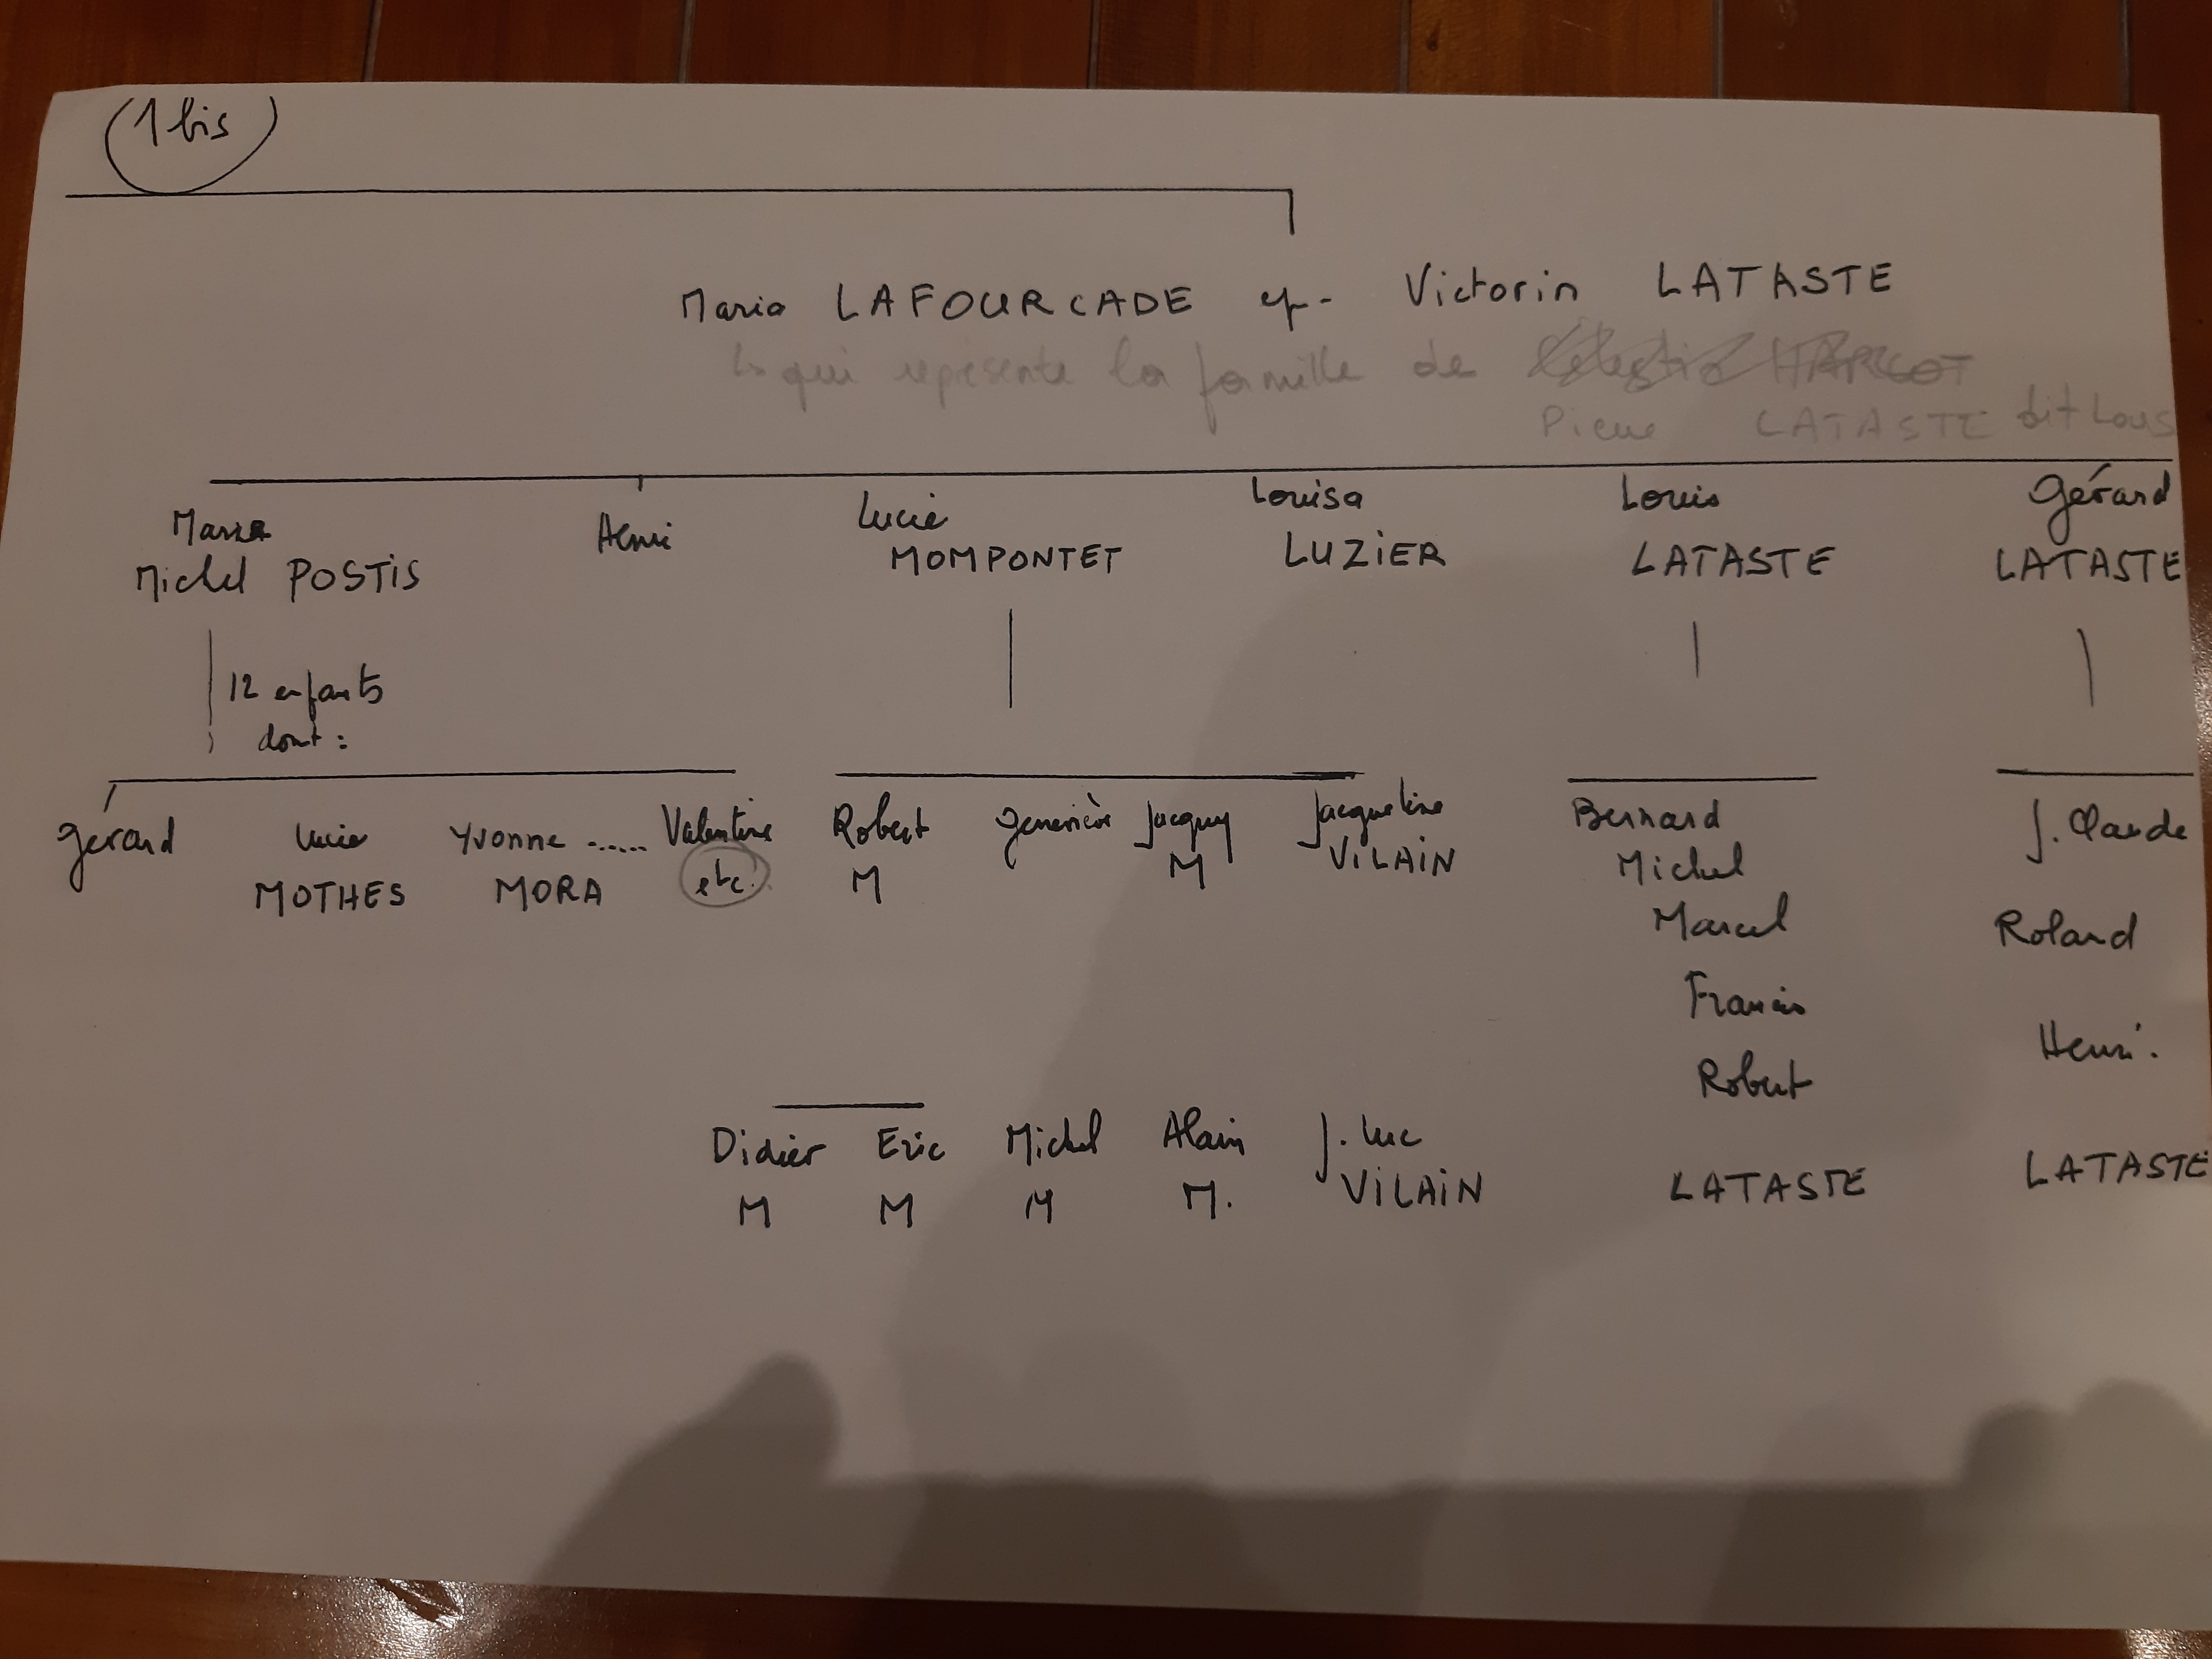 1 bis
Maria LAFOURCADE ep- Victorin LATASTE
qui représente la famille de HARGOT
Pierre LATASTE dit Lous
Maria Henri Lucie Louisa Louis Gérard
Michel POSTIS MOMPONTET LUZIER LATASTE LATASTE
12 enfants
dont :
gérard Lucie Yvonne ...... Valentine Robert geneviève Jacquy Jacqueline Bernard J. Claude
MOTHES MORA etc. M M VILAIN Michel
Marcel Roland
Francis
Henri.
Robert
Didier Eric Michel Alain J. Luc
M M M M. VILAIN LATASTE LATASTE